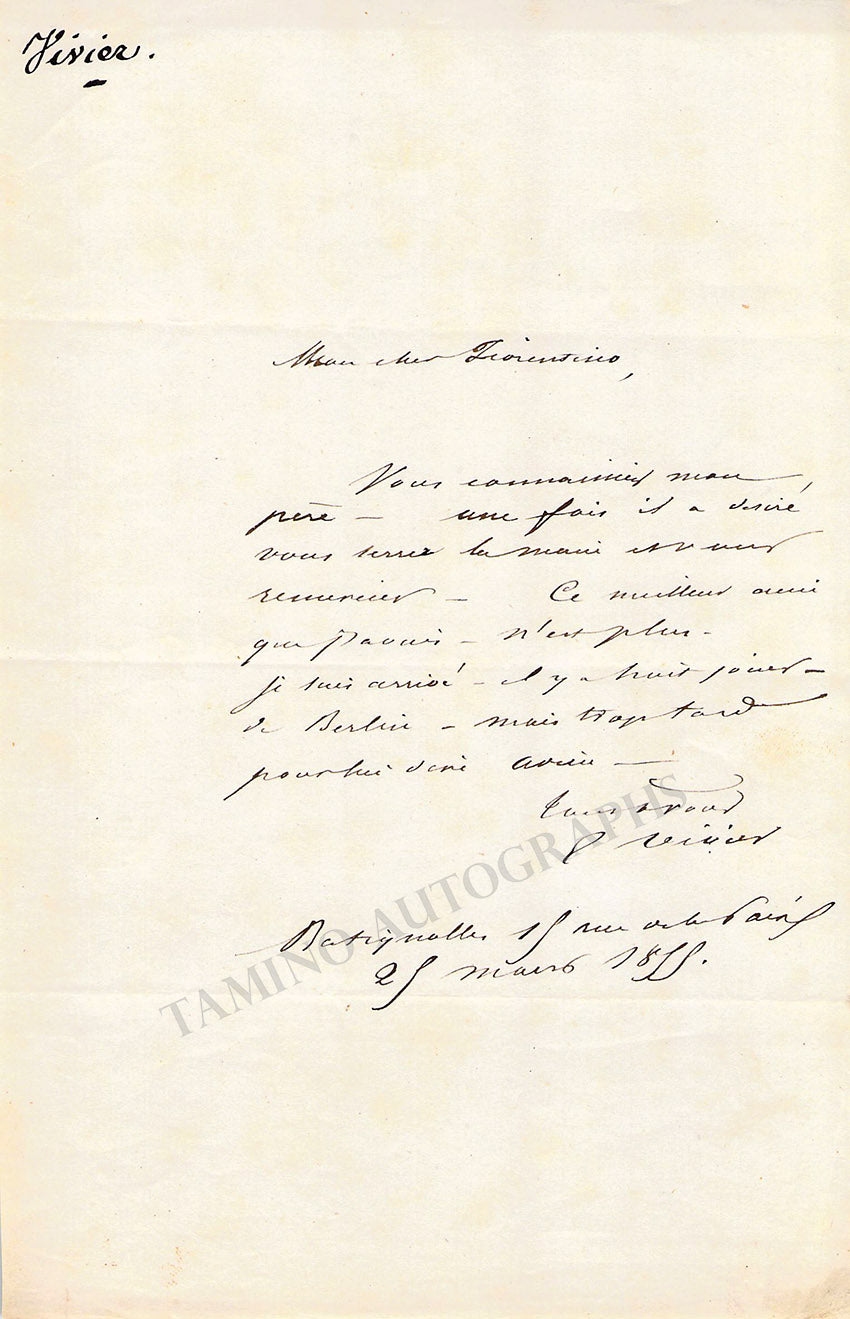 Vivier.
Mon cher Fiorentino,
Vous connaissiez mon
père — une fois il a désiré
vous serrer la main et vous
remercier — Ce meilleur ami
que j'avais — n'est plus —
je suis arrivé — il y a huit jours —
de Berlin — mais trop tard
pour lui dire adieu —
tout à vous
E Vivier
Batignolles 15 rue de la Paix
25 mars 1855.
TAMINO AUTOGRAPHS